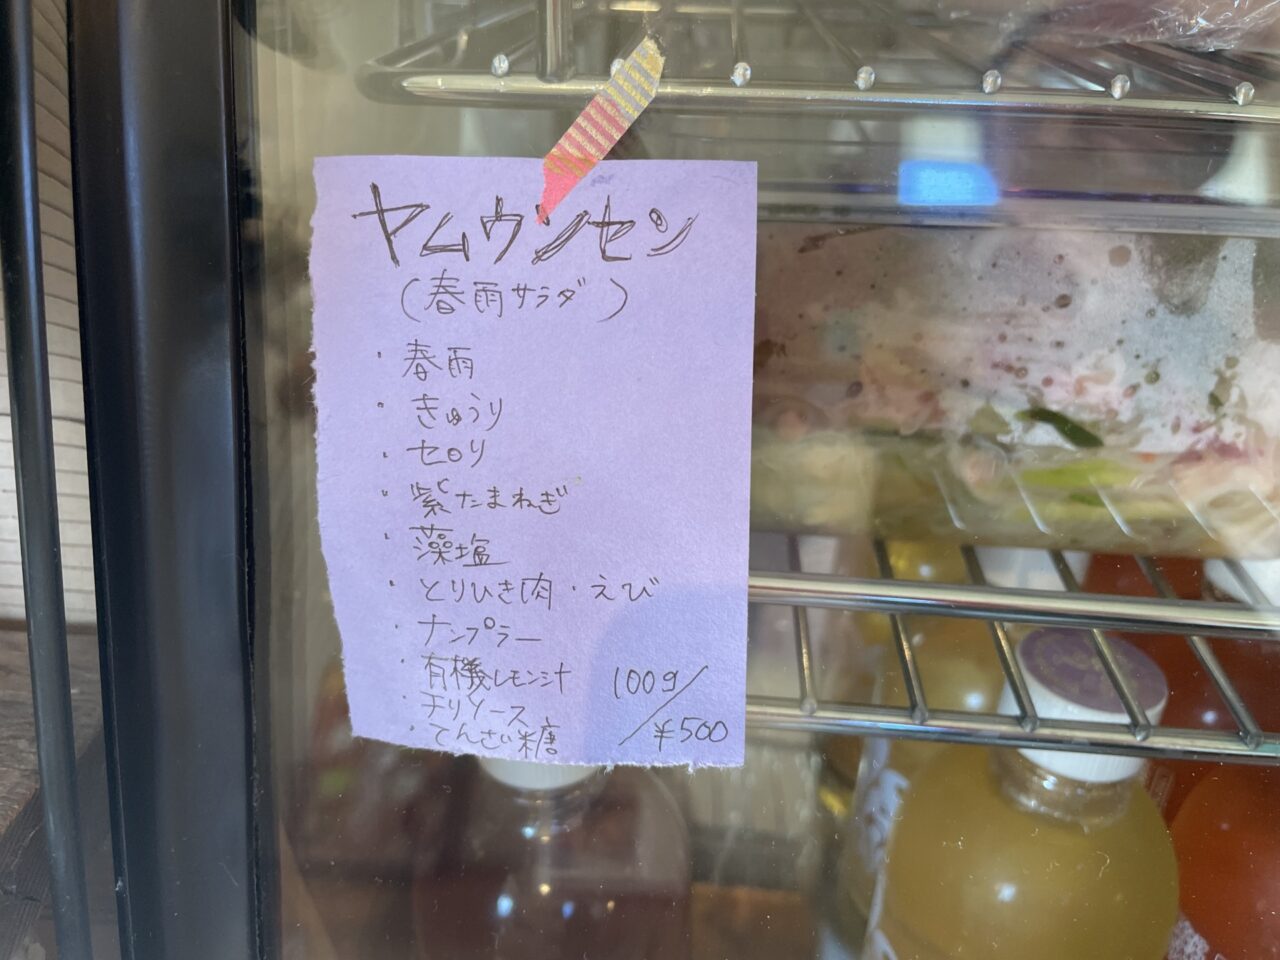 ヤムウンセン
(春雨サラダ)
・春雨
・きゅうり
・セロリ
・紫たまねぎ
・藻塩
・とりひき肉・えび
・ナンプラー
・有機レモン汁
・チリソース
・てんさい糖
100g/
¥500